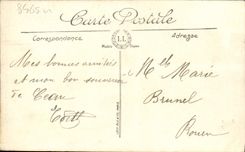 Carte Postale
Correspondance
Adresse
LL
Mes bonnes amitiés
et mon bon souvenir
de
Melle Marie
Brunel
Rouen